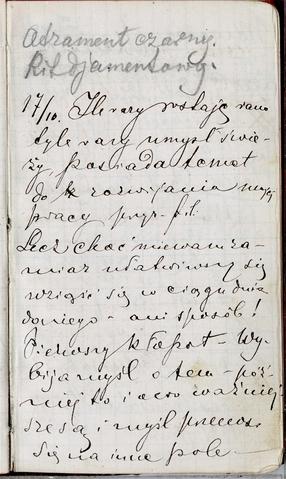 Atrament czarny.
Kit djamentowy.
17/10. Ile razy wstaję rano
tyle razy umysł świe-
ży, posiada temat
do rozwijania mojej
pracy, przyr. fil.
Lecz choć miewam za-
miar ułatwiwszy się
wziąść się w ciągu dnia
do niego - ani sposób!
Pierwszy kłopot - wy-
bija myśl o tem - póź-
niej to i owo ważniej-
sze są i myśl przenosi
się na inne pole -